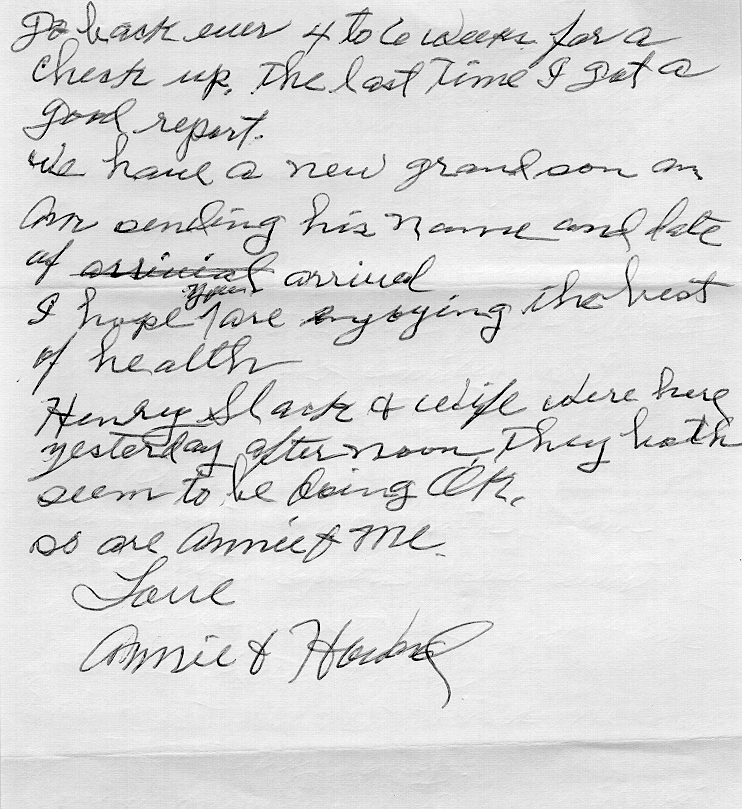 Go back ever 4 to 6 weeks for a
check up. The last Time I got a
good report.
We have a new grandson an
am sending his name and date
of arrival
I hope you are enyoying the best
of health
Henry Slack & wife were here
yesterday afternoon, They both
seem to be doing O.K.
so are Annie & Me.
Love
Annie &